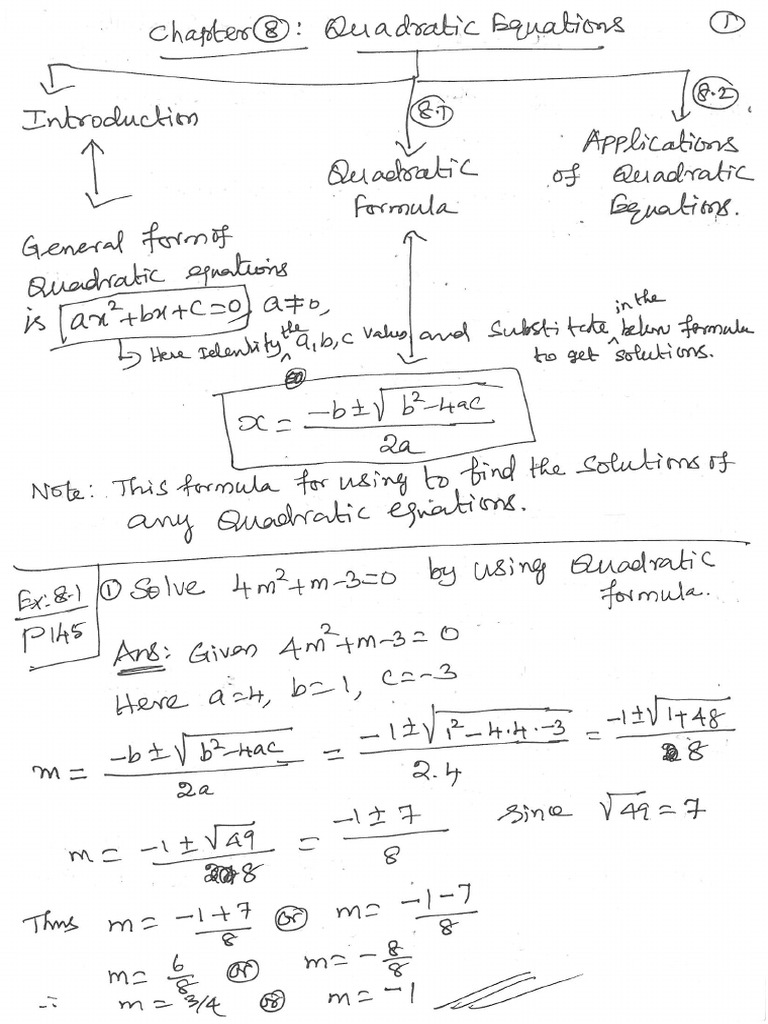 Chapter 8: Quadratic Equations
1
Introduction
8.1
Quadratic
formula
8.2
Applications
of Quadratic
Equations.
General form of
Quadratic equations
is ax²+bx+c=0, a≠0,
Here Identity the a,b,c values and Substitute in the below formula
to get solutions.
x = (-b±√(b²-4ac))/2a
Note: This formula for using to find the solutions of
any Quadratic equations.
Ex:8.1
P145
① Solve 4m²+m-3=0 by using Quadratic
formula.
Ans: Given 4m²+m-3=0
Here a=4, b=1, c=-3
m = (-b±√(b²-4ac))/2a = (-1±√(1²-4.4.-3))/2.4 = (-1±√(1+48))/8
m = (-1±√49)/8 = (-1±7)/8 Since √49=7
Thus m = (-1+7)/8 or m = (-1-7)/8
m = 6/8 or m = -8/8
∴ m = 3/4 or m = -1